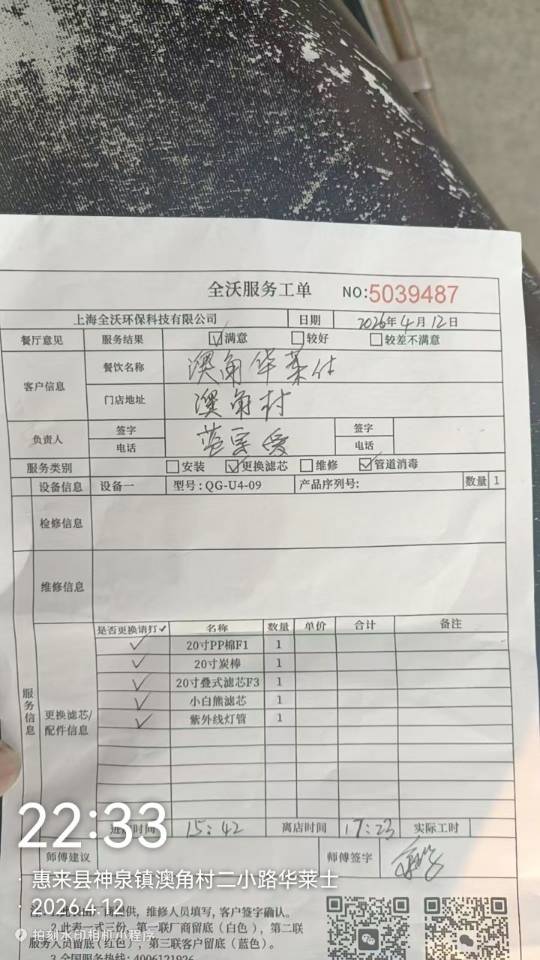 全沃服务工单 NO:5039487
上海全沃环保科技有限公司 日期 2026年4月12日
餐厅意见 服务结果 ☑满意 □较好 □较差不满意
客户信息 餐饮名称 澳角华莱仕
门店地址 澳角村
负责人 签字 签字
电话 电话
服务类别 □安装 ☑更换滤芯 □维修 ☑管道消毒
设备信息 设备一 型号:QG-U4-09 产品序列号: 数量 1
检修信息
维修信息
服务信息
更换滤芯/配件信息
是否更换请打✓ 名称 数量 单价 合计 备注
✓ 20寸PP棉F1 1
✓ 20寸炭棒 1
✓ 20寸叠式滤芯F3 1
✓ 小白熊滤芯 1
✓ 紫外线灯管 1
时间 15:42 离店时间 17:23 实际工时
师傅建议 师傅签字
22:33
· 惠来县神泉镇澳角村二小路华莱士
· 2026.4.12
拍刻水印相机小程序
维修人员填写，客户签字确认。
2.此表一式三份，第一联厂商留底（白色），第二联
服务人员留底（红色），第三联客户留底（蓝色）。
3.全国服务热线：4006121926